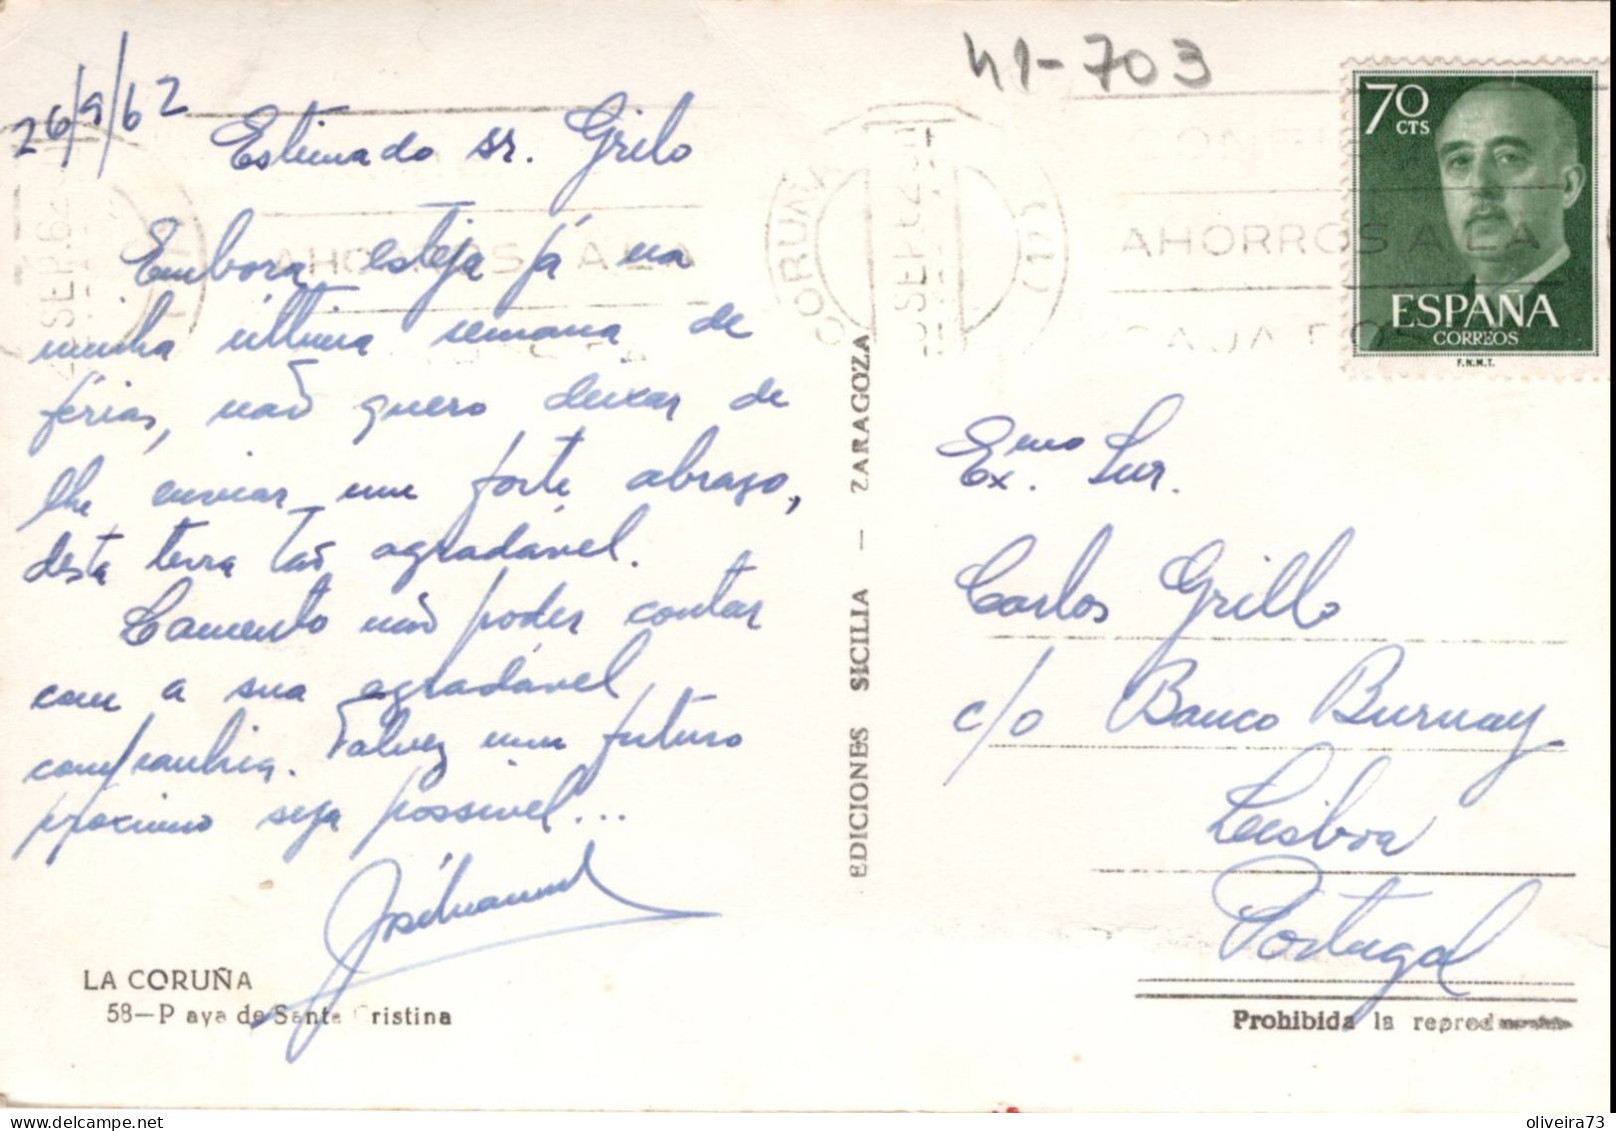 26/9/62
Estimado sr. Grilo
Embora esteja já na
minha última semana de
férias, não quero deixar de
lhe enviar um forte abraço,
desta terra tão agradável.
Lamento não poder contar
com a sua agradável
companhia. Talvez num futuro
próximo seja possível...
José Manuel
LA CORUÑA
58—P aya de Santa Cristina
EDICIONES SICILIA — ZARAGOZA
41-703
70
CTS
ESPAÑA
CORREOS
F.N.M.T.
CORUÑA
SEP. 62
AHORROS A LA
AHORROS A LA
CAJA POS
Exmo. Snr.
Carlos Grillo
c/o Banco Burnay
Lisboa
Portugal
Prohibida la reprod
oliveira73